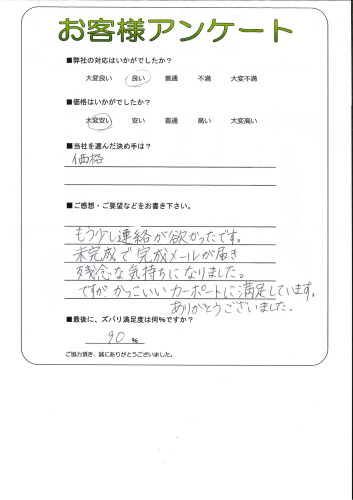 お客様アンケート
■弊社の対応はいかがでしたか?
大変良い 良い 普通 不満 大変不満
■価格はいかがでしたか?
大変安い 安い 普通 高い 大変高い
■当社を選んだ決め手は?
価格
■ご感想・ご要望などをお書き下さい。
もう少し連絡が欲かったです。
未完成で完成メールが届き
残念な気持ちになりました。
ですが かっこいいカーポートに満足しています。
ありがとうございました。
■最後に、ズバリ満足度は何%ですか?
90 %
ご協力頂き、誠にありがとうございました。